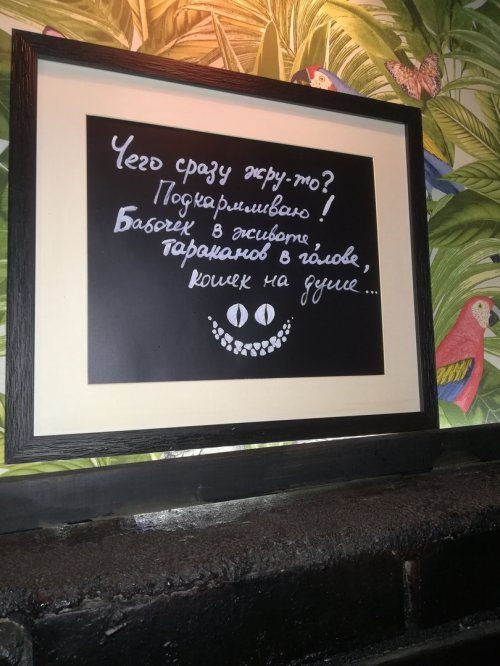 Чего сразу жру-то?
Подкармливаю!
Бабочек в животе,
тараканов в голове,
кошек на душе...